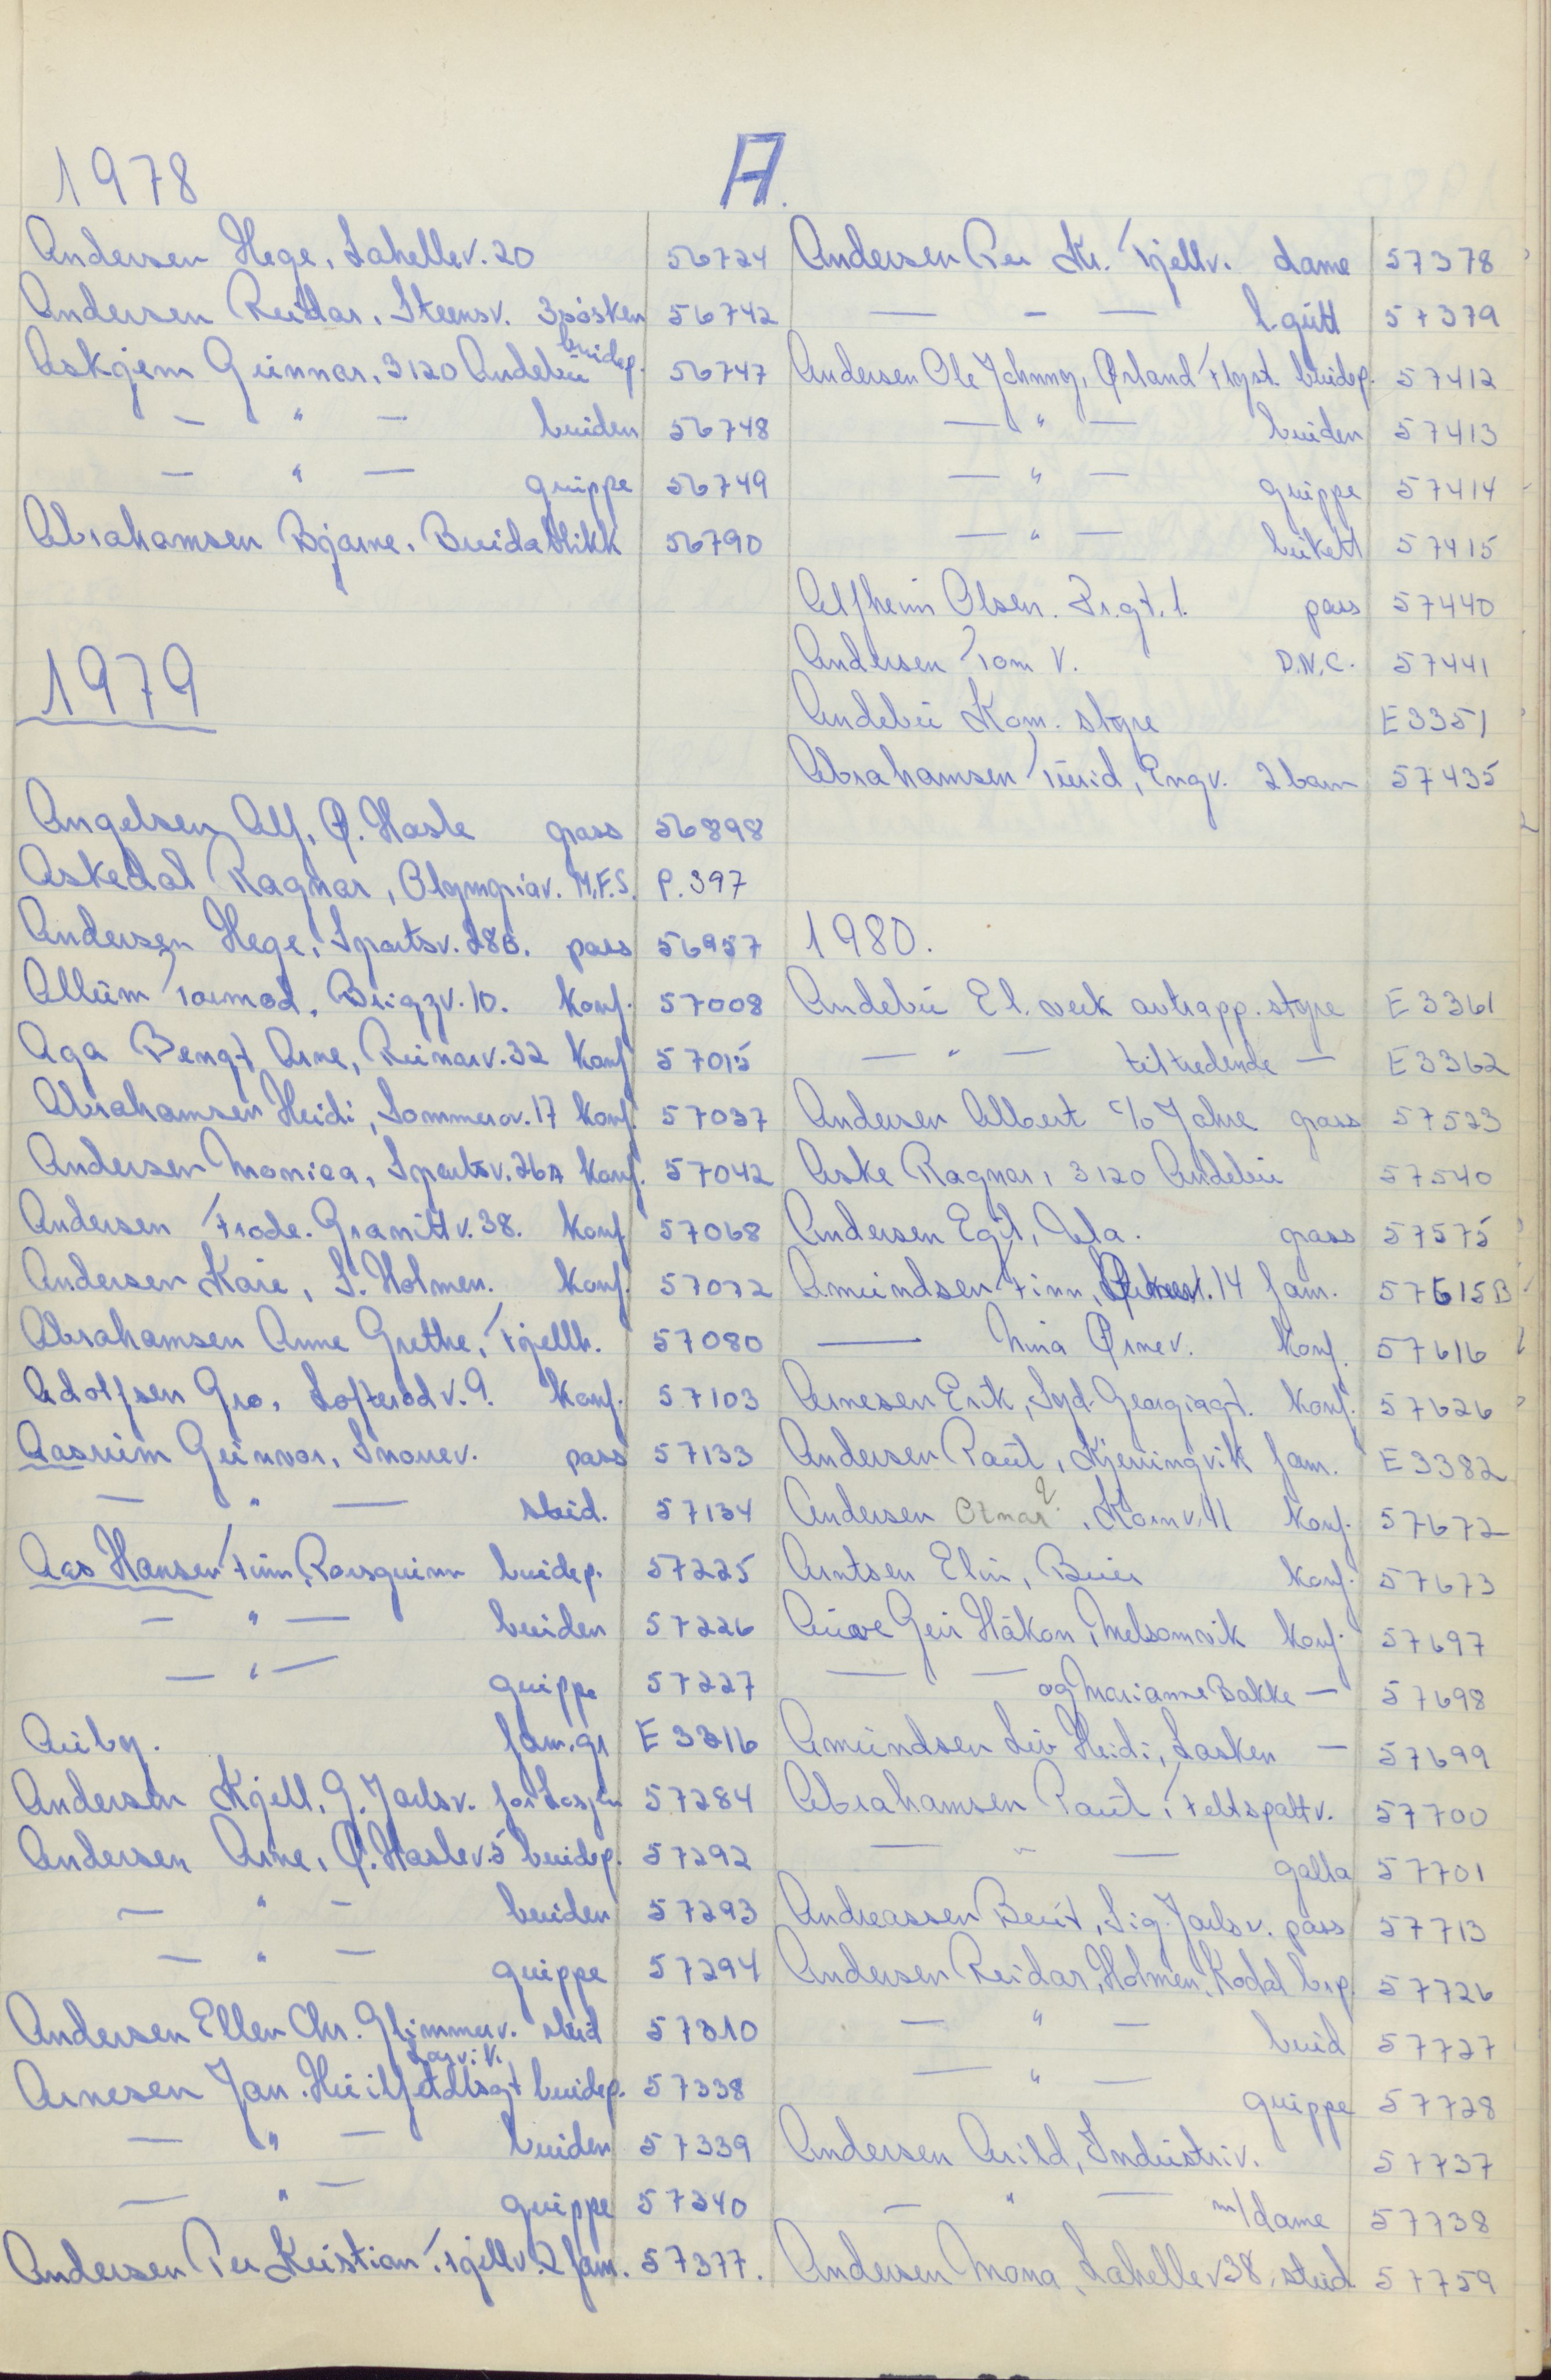 1978
A.
Andersen Hege, Lahellev. 20 56724
Andersen Reidar, Steensv. 3 påsken 56742
Askjem Gunnar, 3120 Andebu brudep. 56747
— " — bruden 56748
— " — gruppe 56749
Abrahamsen Bjarne, Breidablikk 56790
1979
Angelsen Alf, Ø. Hasle pass 56898
Askedal Ragnar, Olympiav. M.F.S. P.397
Andersen Hege, Sportsv. 28B. pass 56957
Allum Tormod, Briggv. 10. konf. 57008
Aga Bengt Arne, Runarv. 32 konf 57015
Abrahamsen Heidi, Sommerov. 17 konf. 57037
Andersen Monica, Sportsv. 26A konf. 57042
Andersen Frode. Granittv. 38. konf 57068
Andersen Kare, S. Holmen. konf. 57072
Abrahamsen Anne Grethe, Fjellh. 57080
Adolfsen Gro, Lofterødv. 9. konf. 57103
Aasrum Gunvor, Snorrev. pass 57133
— " — stud. 57134
Aas Hansen Finn, brudep. 57225
— " — bruden 57226
— " — gruppe 57227
Auby. fam.gr E 3316
Andersen Kjell, G. Jarlsv. for Losjen 57284
Andersen Arne, Ø. Haslev. 5 brudep. 57292
— " — bruden 57293
— " — gruppe 57294
Andersen Ellen Chr. Glimmerv. stud 57310
Arnesen Jan. Huitfeldtsgt Larvik brudep. 57338
— " — bruden 57339
— " — gruppe 57340
Andersen Per Kristian, Fjellv. 2 fam. 57377.
Andersen Per Kr. Fjellv. dame 57378
— - — l.gutt 57379
Andersen Ole Johnny, Ørland Flyst. brudep. 57412
— " — bruden 57413
— " — gruppe 57414
— " — bukett 57415
Alfheim Olsen. Pr.gt. 1. pass 57440
Andersen Tom V. D.N.C. 57441
Andebu Kom. styre E3351
Abrahamsen Turid, Engv. 2 barn 57435
1980.
Andebu El. verk avtrapp. styre E 3361
— " — tiltredende — E 3362
Andersen Albert c/o Jahre pass 57523
Aske Ragnar, 3120 Andebu 57540
Andersen Egil, Ula. pass 57575
Amundsen Finn, 14 fam. 57615B
— Nina Ørnev. konf. 57616
Arnesen Erik, Syd-Georgiagt. konf. 57626
Andersen Paul, Kjerringvik fam. E 3382
Andersen Otmar?, Kornv. 11 konf. 57672
Arntsen Elin, konf. 57673
Auve Geir Håkon, Melsomvik konf. 57697
— — og Marianne Bakke — 57698
Amundsen Liv Heidi, Lasken — 57699
Abrahamsen Paul, Feltspattv. 57700
— " — galla 57701
Andreassen Berit, Sig. Jarlsv. pass 57713
Andersen Reidar, Holmen, Kodal brp. 57726
— " — brud 57727
— " — gruppe 57728
Andersen Arild, Industriv. 57737
— " — m/dame 57738
Andersen Mona, Lahellev 38, stud 57759